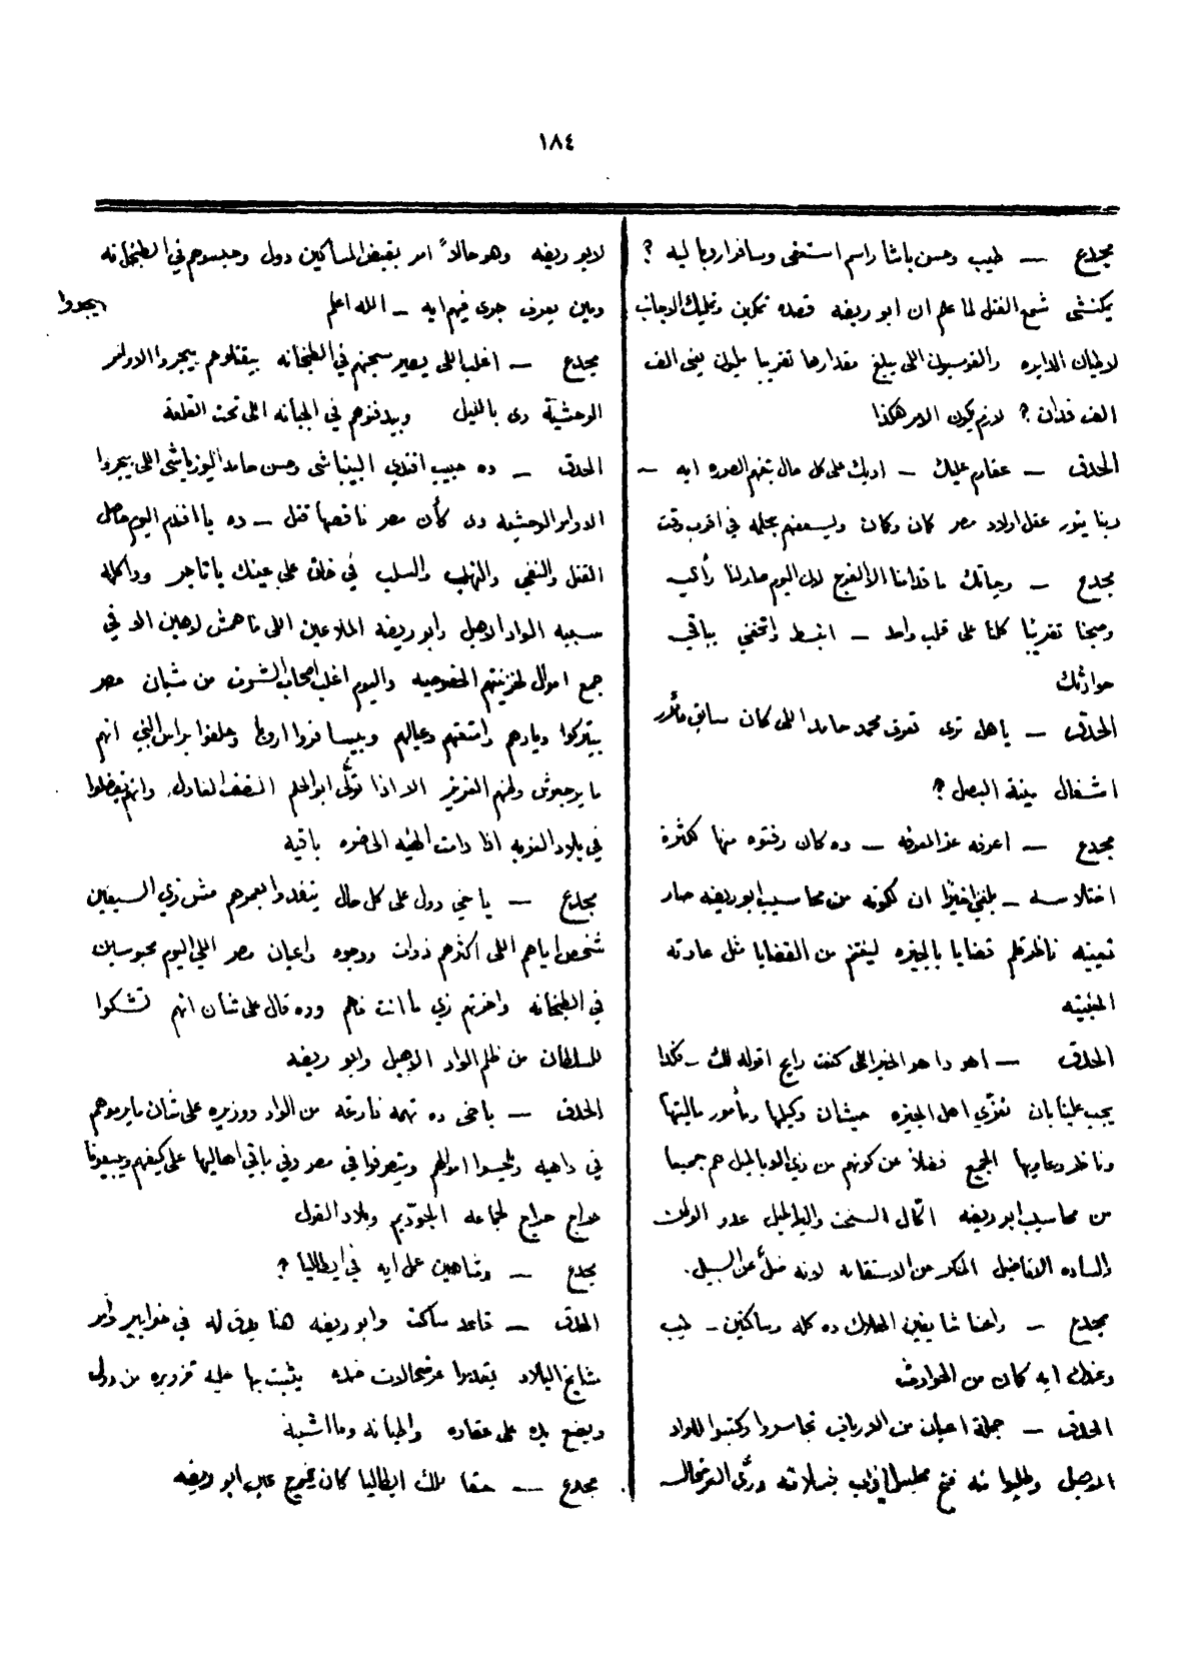 ١٨٤
مجدع — طيب وحسن باشا راسم استعفى وسافر اروبا ليه ؟
يكنشى شمع الفتل لما علم ان ابو ريضه قصده تمكين وتمليك الاجانب
لاطيان الدايره والقومسيون اللى يبلغ مقدارها تقريبا مليون يعنى الف
الف فدان ؟ لازم يكون الامر هكذا
الحدق — عفارم عليك — اديك على كل حال بتفهم الصوره ايه —
ربنا ينور عقل اولاد مصر كان وكان ويسعفهم بحلمه في اقرب وقت
مجدع — وحياتك ما قدامنا الا الفرج لان اليوم صار لنا رأي
وصبحنا تقريبًا كلنا على قلب واحد — انبسط واتحفني بباقي
حوادثك
الحدق — ياهل ترى تعرف محمد حامد اللى كان سابق مأمور
اشغال مينة البصل ؟
مجدع — اعرفه عز المعرفه — ده كان رفتوه منها لكثرة
اختلاسه — بلغني اخيرًا ان لكونه من محاسيب ابو ريضه صار
تعيينه ناظر قلم قضايا بالجيزه ليغتنم من القضايا مثل عادته
الحدق — اهو دا هو الخبر اللى كنت رايح اقوله لك — فكدا
يجب علينا بان نعزّي اهل الجيزه حيث ان وكيلها ومأمور ماليتها
وناظر دعاويها الجميع فضلاً عن كونهم من ذوي الوبا ليل هم جميعا
من محاسيب ابو ريضه اكّال السحت والبراطيل عدو الوطن
والساده الافاضل المنكر من الاستقامه لانه ضلّ عن السبيل .
مجدع — واحنا شايفين الهلاك ده كله وساكتين — طيب
وعندك ايه كمان من الحوادث
الحدق — جملة اعيان من الارياف تجاسروا وكتبوا للواد
الاهبل وطلبوا منه فتح مجلس النواب ودّى العرضحال
لابو ريضه وهو حالاً امر بقبض المساكين دول وحبسوهم في الطبخانه
ومين يعرف جرى فيهم ايه — الله اعلم
مجدع — اغلب اللى يصير سجنهم في الطبخانه بيقتلوهم بيجروا الاوامر
الوحشية دى بالليل وبيدفنوهم في الجبانه اللى تحت القلعة
الحدق — ده حبيب افندي البينباشى وحسن حامد اليوزباشى اللى بيجروا
الاوامر الوحشيه دى كأن مصر ناقصها قتل — ده يا افندم اليوم حاصل
القتل والنفي والنهب والسلب في خلق على عينك يا تاجر ودا كله
سببه الواد الاهبل وابو ريضه الملاعين اللى ما همش لاهيين الا في
جمع اموال لخزينتهم الخصوصيه واليوم اغلب اصحاب الشرف من شبان مصر
بيتركوا ديارهم وامتعتهم وعيالهم وبيسافروا اروبا وحلفوا براس النبي انهم
ما يرجعوش وطنهم العزيز الا اذا تولّى ابو الحلم المنصف العادل. وانهم يفضلوا
في بلاد الغربه اذا دامت الهيئه الحاضره باقيه
مجدع — يا خي دول على كل حال ينفدوا بعمرهم مش زي السبعين
شخص اياهم اللى اكثرهم ذوات ووجوه واعيان مصر اللى اليوم محبوسين
في الطبخانه واخرتهم زي ما انت فاهم وده قال على شان انهم تشكوا
للسلطان من ظلم الواد الاهبل وابو ريضه
الحدق — ياخى ده تهمه فارغه من الواد ووزيره على شان ما يرموهم
في داهيه ويلحسوا اموالهم ويتصرفوا في مصر وفي باقي اهاليها على كيفهم ويبيعونا
حراج حراج لجماعه الجودّيم وبلاد الفول
مجدع — وشاهين عمل ايه في ايطاليا ؟
الحدق — قاعد ساكت وابو ريضه هنا
مشايخ البلاد بتقديم عرضحالات ضده يثبت بها عليه تزويره من دول
ويضع يده على عقاره واطيانه وما اشبه
مجدع — حقا ملك ايطاليا كان يخرج على ابو ريضه